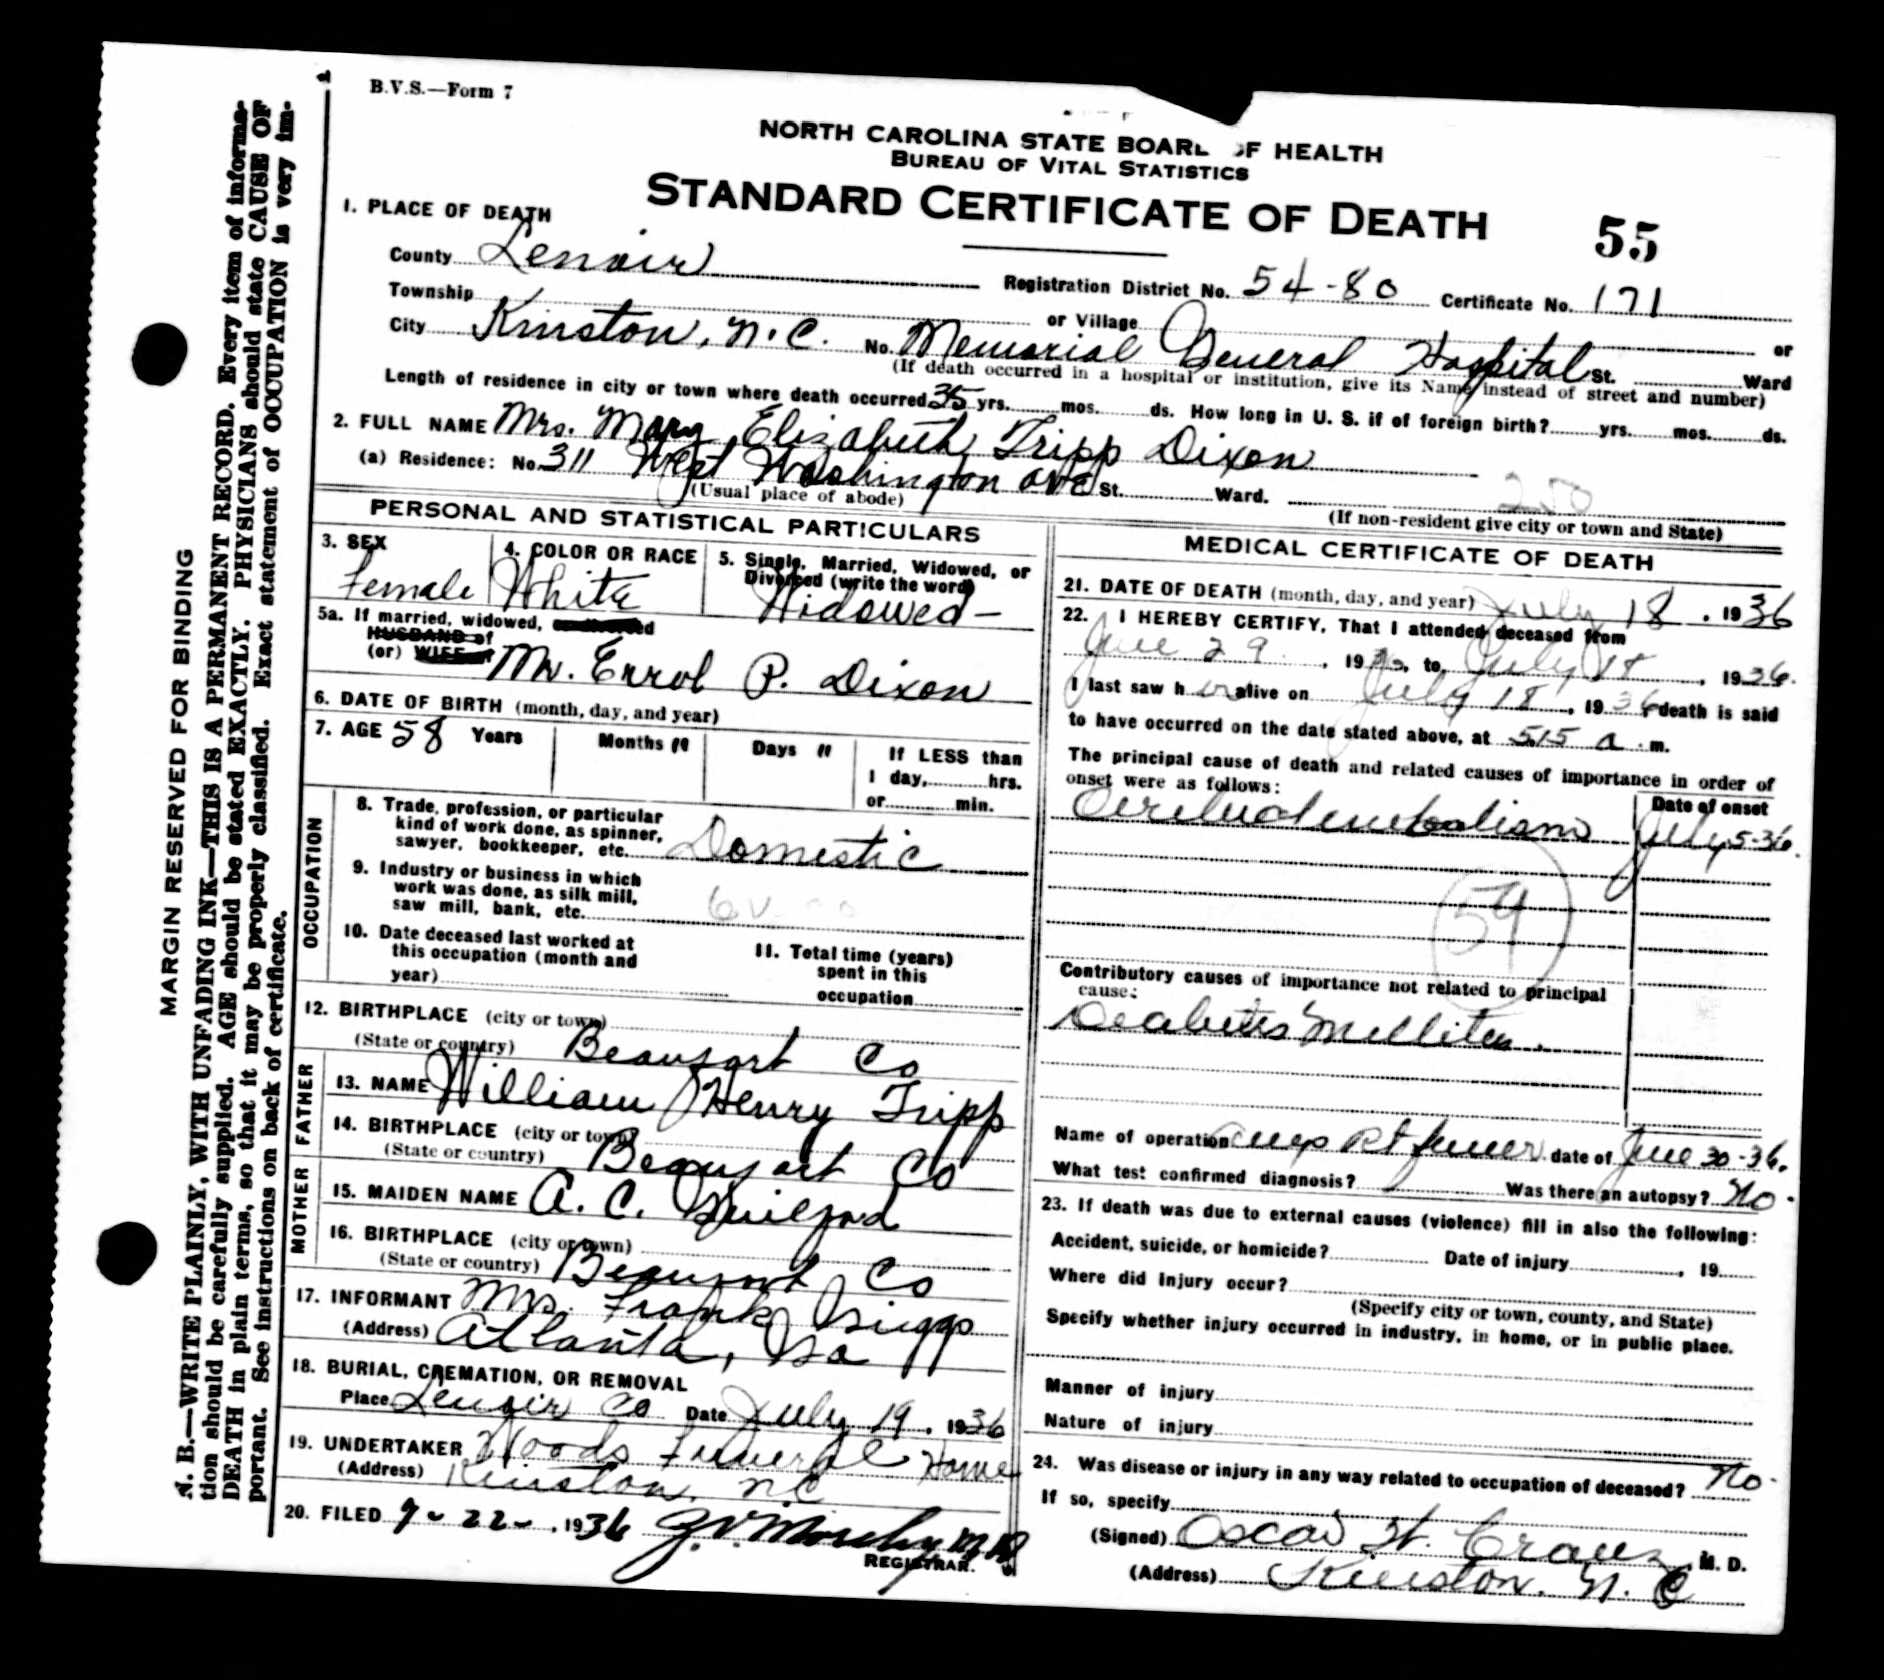 B.V.S.—Form 7
NORTH CAROLINA STATE BOARD OF HEALTH
BUREAU OF VITAL STATISTICS
STANDARD CERTIFICATE OF DEATH
55
1. PLACE OF DEATH
County Lenoir Registration District No. 54-80 Certificate No. 171
Township or Village or
City Kinston, N.C. No. Memorial General Hospital St. Ward
(If death occurred in a hospital or institution, give its Name instead of street and number)
Length of residence in city or town where death occurred 35 yrs. mos. ds. How long in U. S. if of foreign birth? yrs. mos. ds.
2. FULL NAME Mrs. Mary Elizabeth Tripp Dixon
(a) Residence: No. 311 West Washington ave St. Ward. 250
(Usual place of abode)
(If non-resident give city or town and State)
PERSONAL AND STATISTICAL PARTICULARS
3. SEX
Female
4. COLOR OR RACE
White
5. Single, Married, Widowed, or
Divorced (write the word)
Widowed—
5a. If married, widowed, or divorced
HUSBAND of
(or) WIFE of Mr. Errol P. Dixon
6. DATE OF BIRTH (month, day, and year)
7. AGE 58 Years Months " Days "
If LESS than
1 day, hrs.
or min.
OCCUPATION
8. Trade, profession, or particular
kind of work done, as spinner,
sawyer, bookkeeper, etc. Domestic
9. Industry or business in which
work was done, as silk mill,
saw mill, bank, etc.
10. Date deceased last worked at
this occupation (month and
year)
11. Total time (years)
spent in this
occupation
12. BIRTHPLACE (city or town)
(State or country) Beaufort Co
FATHER
13. NAME William Henry Tripp
14. BIRTHPLACE (city or town)
(State or country) Beaufort Co
MOTHER
15. MAIDEN NAME A. C. Guilford
16. BIRTHPLACE (city or town)
(State or country) Beaufort Co
17. INFORMANT Mrs. Frank Briggs
(Address) Atlanta, Ga
18. BURIAL, CREMATION, OR REMOVAL
Place Lenoir Co Date July 19, 1936
19. UNDERTAKER Woods Funeral Home
(Address) Kinston, NC
20. FILED 7-22-, 1936
REGISTRAR.
MEDICAL CERTIFICATE OF DEATH
21. DATE OF DEATH (month, day, and year) July 18, 1936
22. I HEREBY CERTIFY, That I attended deceased from
June 29, 1936, to July 18, 1936.
I last saw her alive on July 18, 1936 death is said
to have occurred on the date stated above, at 515 a. m.
The principal cause of death and related causes of importance in order of
onset were as follows:
Date of onset
Cerebral embolism July 5-36.
59
Contributory causes of importance not related to principal
cause:
Diabetes Mellitus.
Name of operation Amp Rt femur date of June 30-36.
What test confirmed diagnosis? Was there an autopsy? No.
23. If death was due to external causes (violence) fill in also the following:
Accident, suicide, or homicide? Date of injury , 19
Where did injury occur?
(Specify city or town, county, and State)
Specify whether injury occurred in industry, in home, or in public place.
Manner of injury
Nature of injury
24. Was disease or injury in any way related to occupation of deceased? No.
If so, specify
(Signed) Oscar M. D.
(Address) Kinston. N. C
MARGIN RESERVED FOR BINDING
N. B.—WRITE PLAINLY, WITH UNFADING INK—THIS IS A PERMANENT RECORD. Every item of informa-
tion should be carefully supplied. AGE should be stated EXACTLY. PHYSICIANS should state CAUSE OF
DEATH in plain terms, so that it may be properly classified. Exact statement of OCCUPATION is very im-
portant. See instructions on back of certificate.